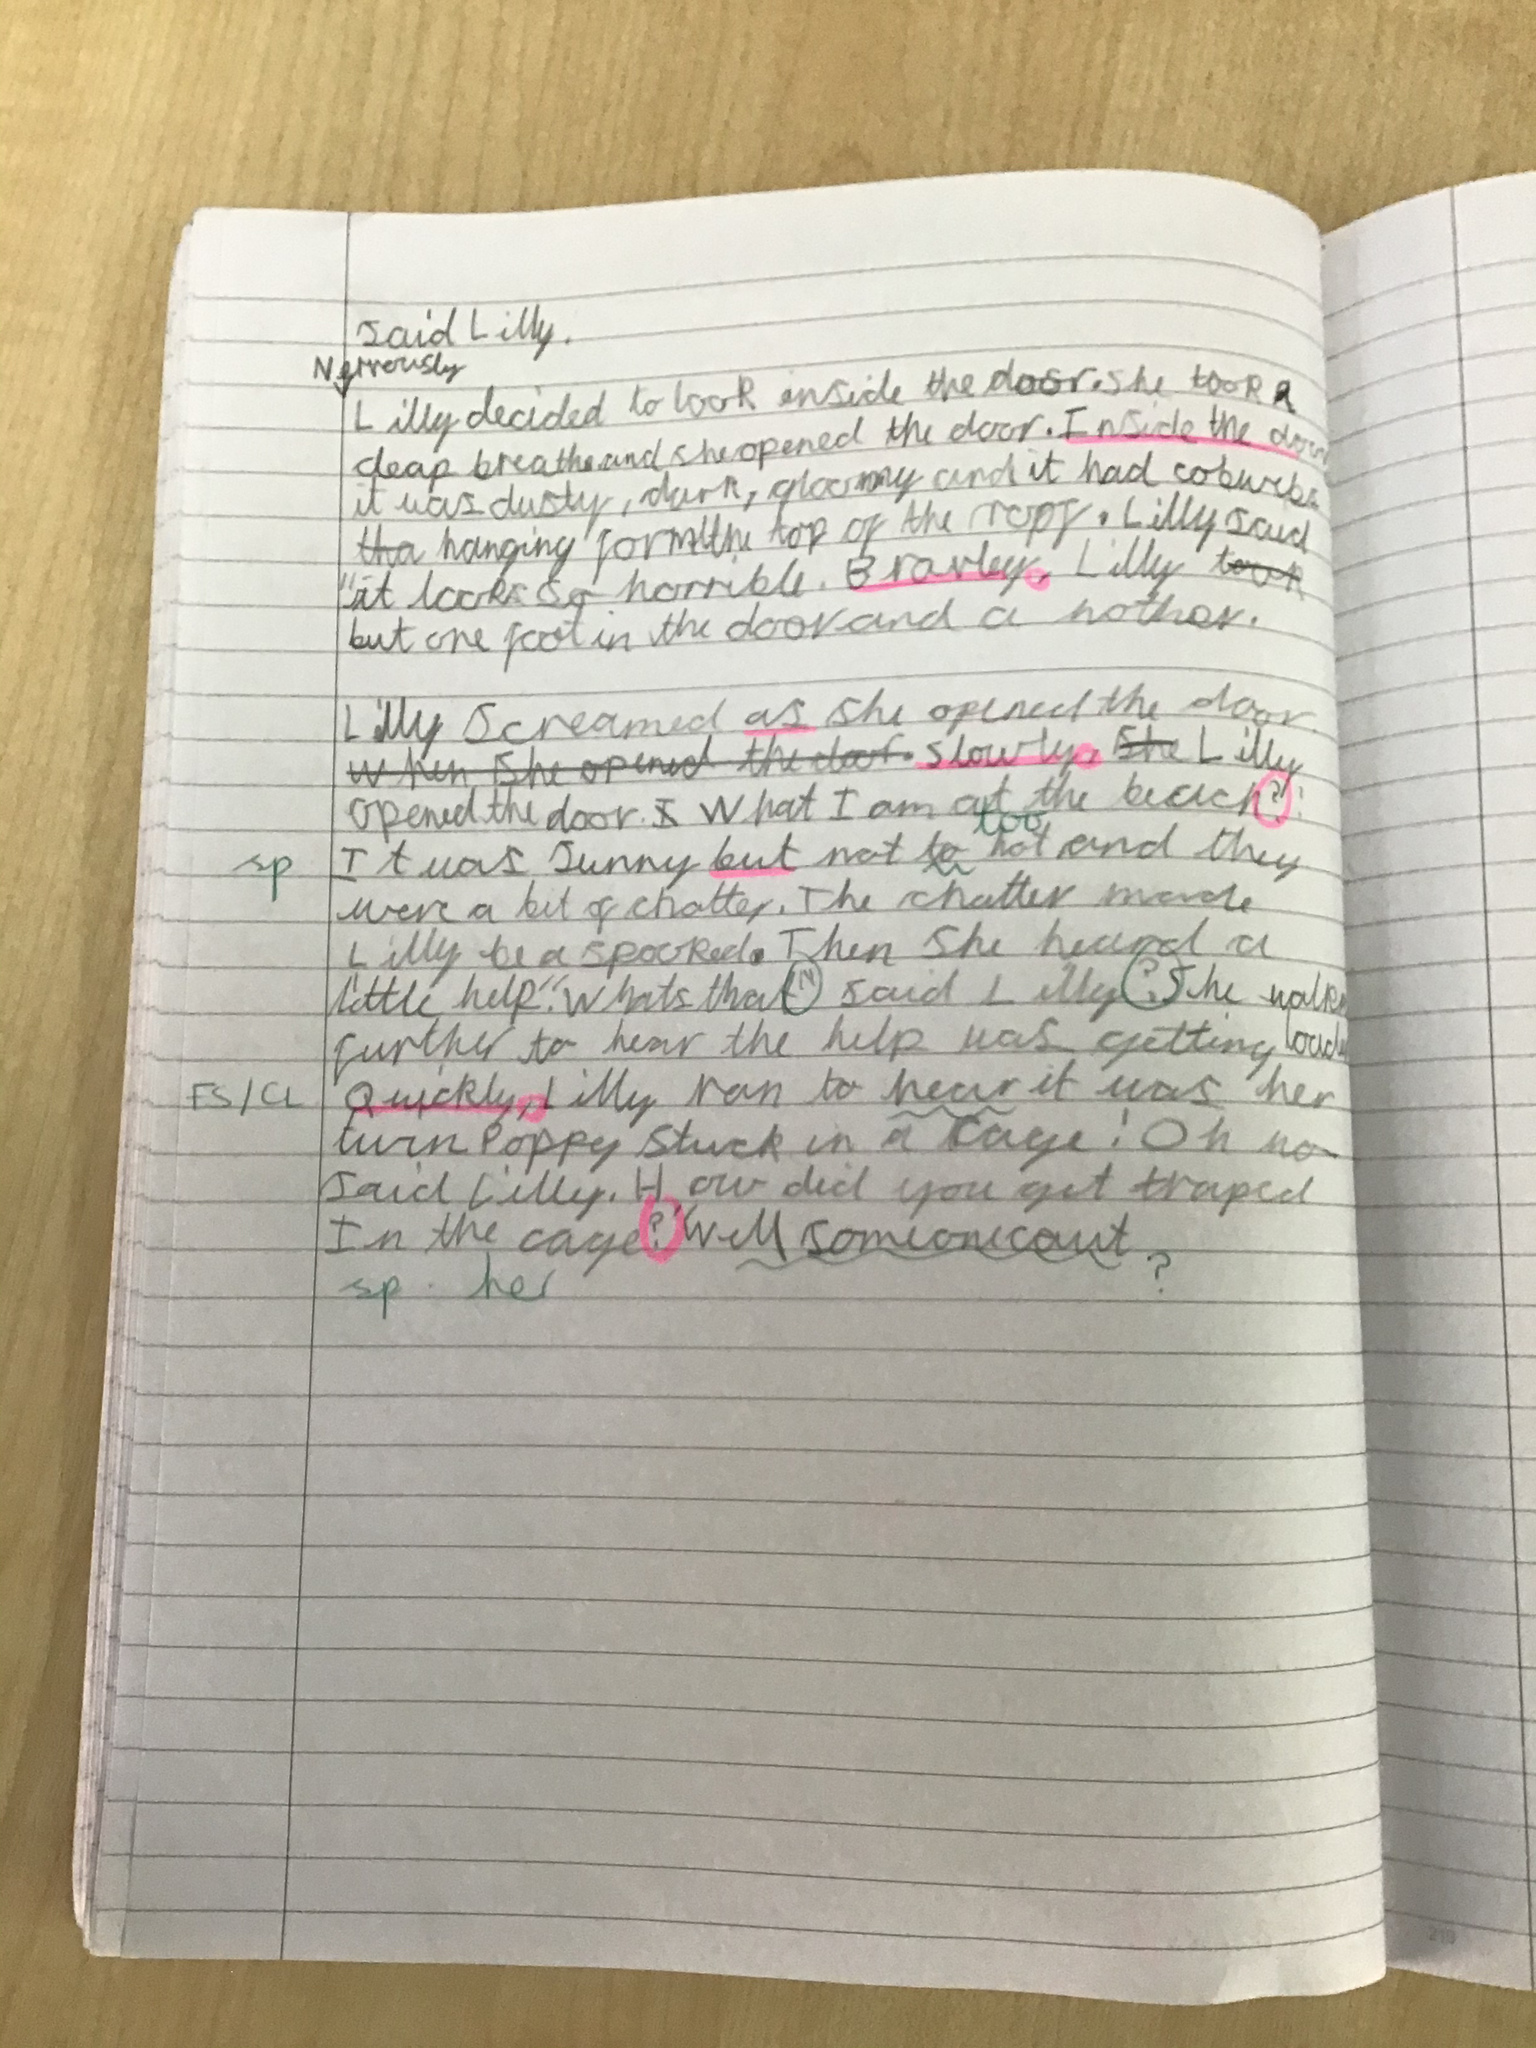 said Lilly.
Nerrously
Lilly decided to look inside the door. she took a
deap breathe and she opened the door. Inside the door
it was dusty, dark, gloomy and it had cobwebs
tha hanging form the top of the roof. Lilly said
"it looks so horrible. Bravley, Lilly took
but one foot in the door and a nother.
Lilly screamed as she opened the door.
when she opened the door. slowly, she Lilly
opened the door. I What I am at the beach?!
too
sp It was sunny but not to hot and they
were a bit of chatter. The chatter made
Lilly be a spooked. Then she heard a
little help". "Whats that" said Lilly?. She walk
further to hear the help was getting loud
FS/CL Quickly, Lilly ran to hear it was her
twin Poppy stuck in a cage! Oh no
said Lilly. How did you get traped
In the cage?" "Well someone caut
?
sp. her
219